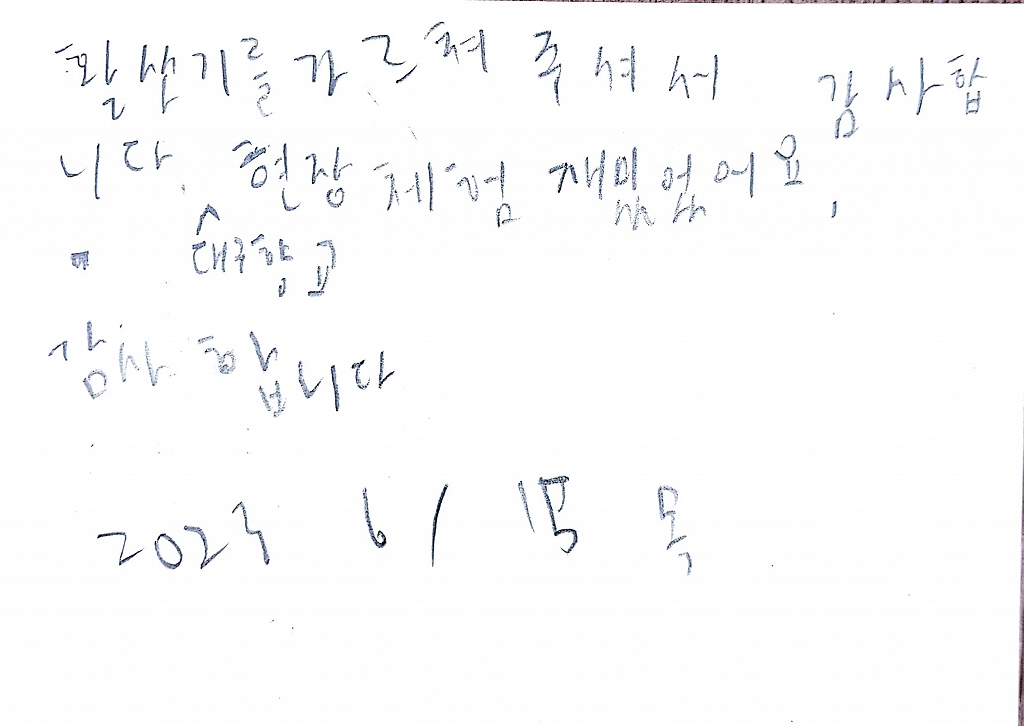 활삿기를 가르쳐 주셔서 감사합
니다. 현장 체험 재밌었어요.
대구향교
감사합니다
2023 6/ 15 목